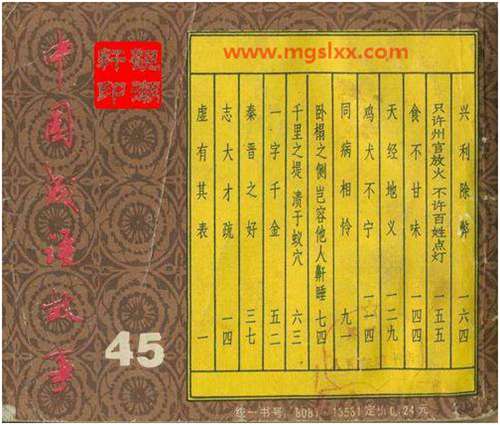 www.mgslxx.com
中国成语故事
45
虚有其表 一
志大才疏 一四
秦晋之好 三七
一字千金 五二
千里之堤 溃于蚁穴 六三
卧榻之侧岂容他人鼾睡 七四
同病相怜 九一
鸡犬不宁 一一四
天经地义 一二九
食不甘味 一四四
只许州官放火 不许百姓点灯 一五五
兴利除弊 一六四
统一书号：8081·13551 定价0.24元